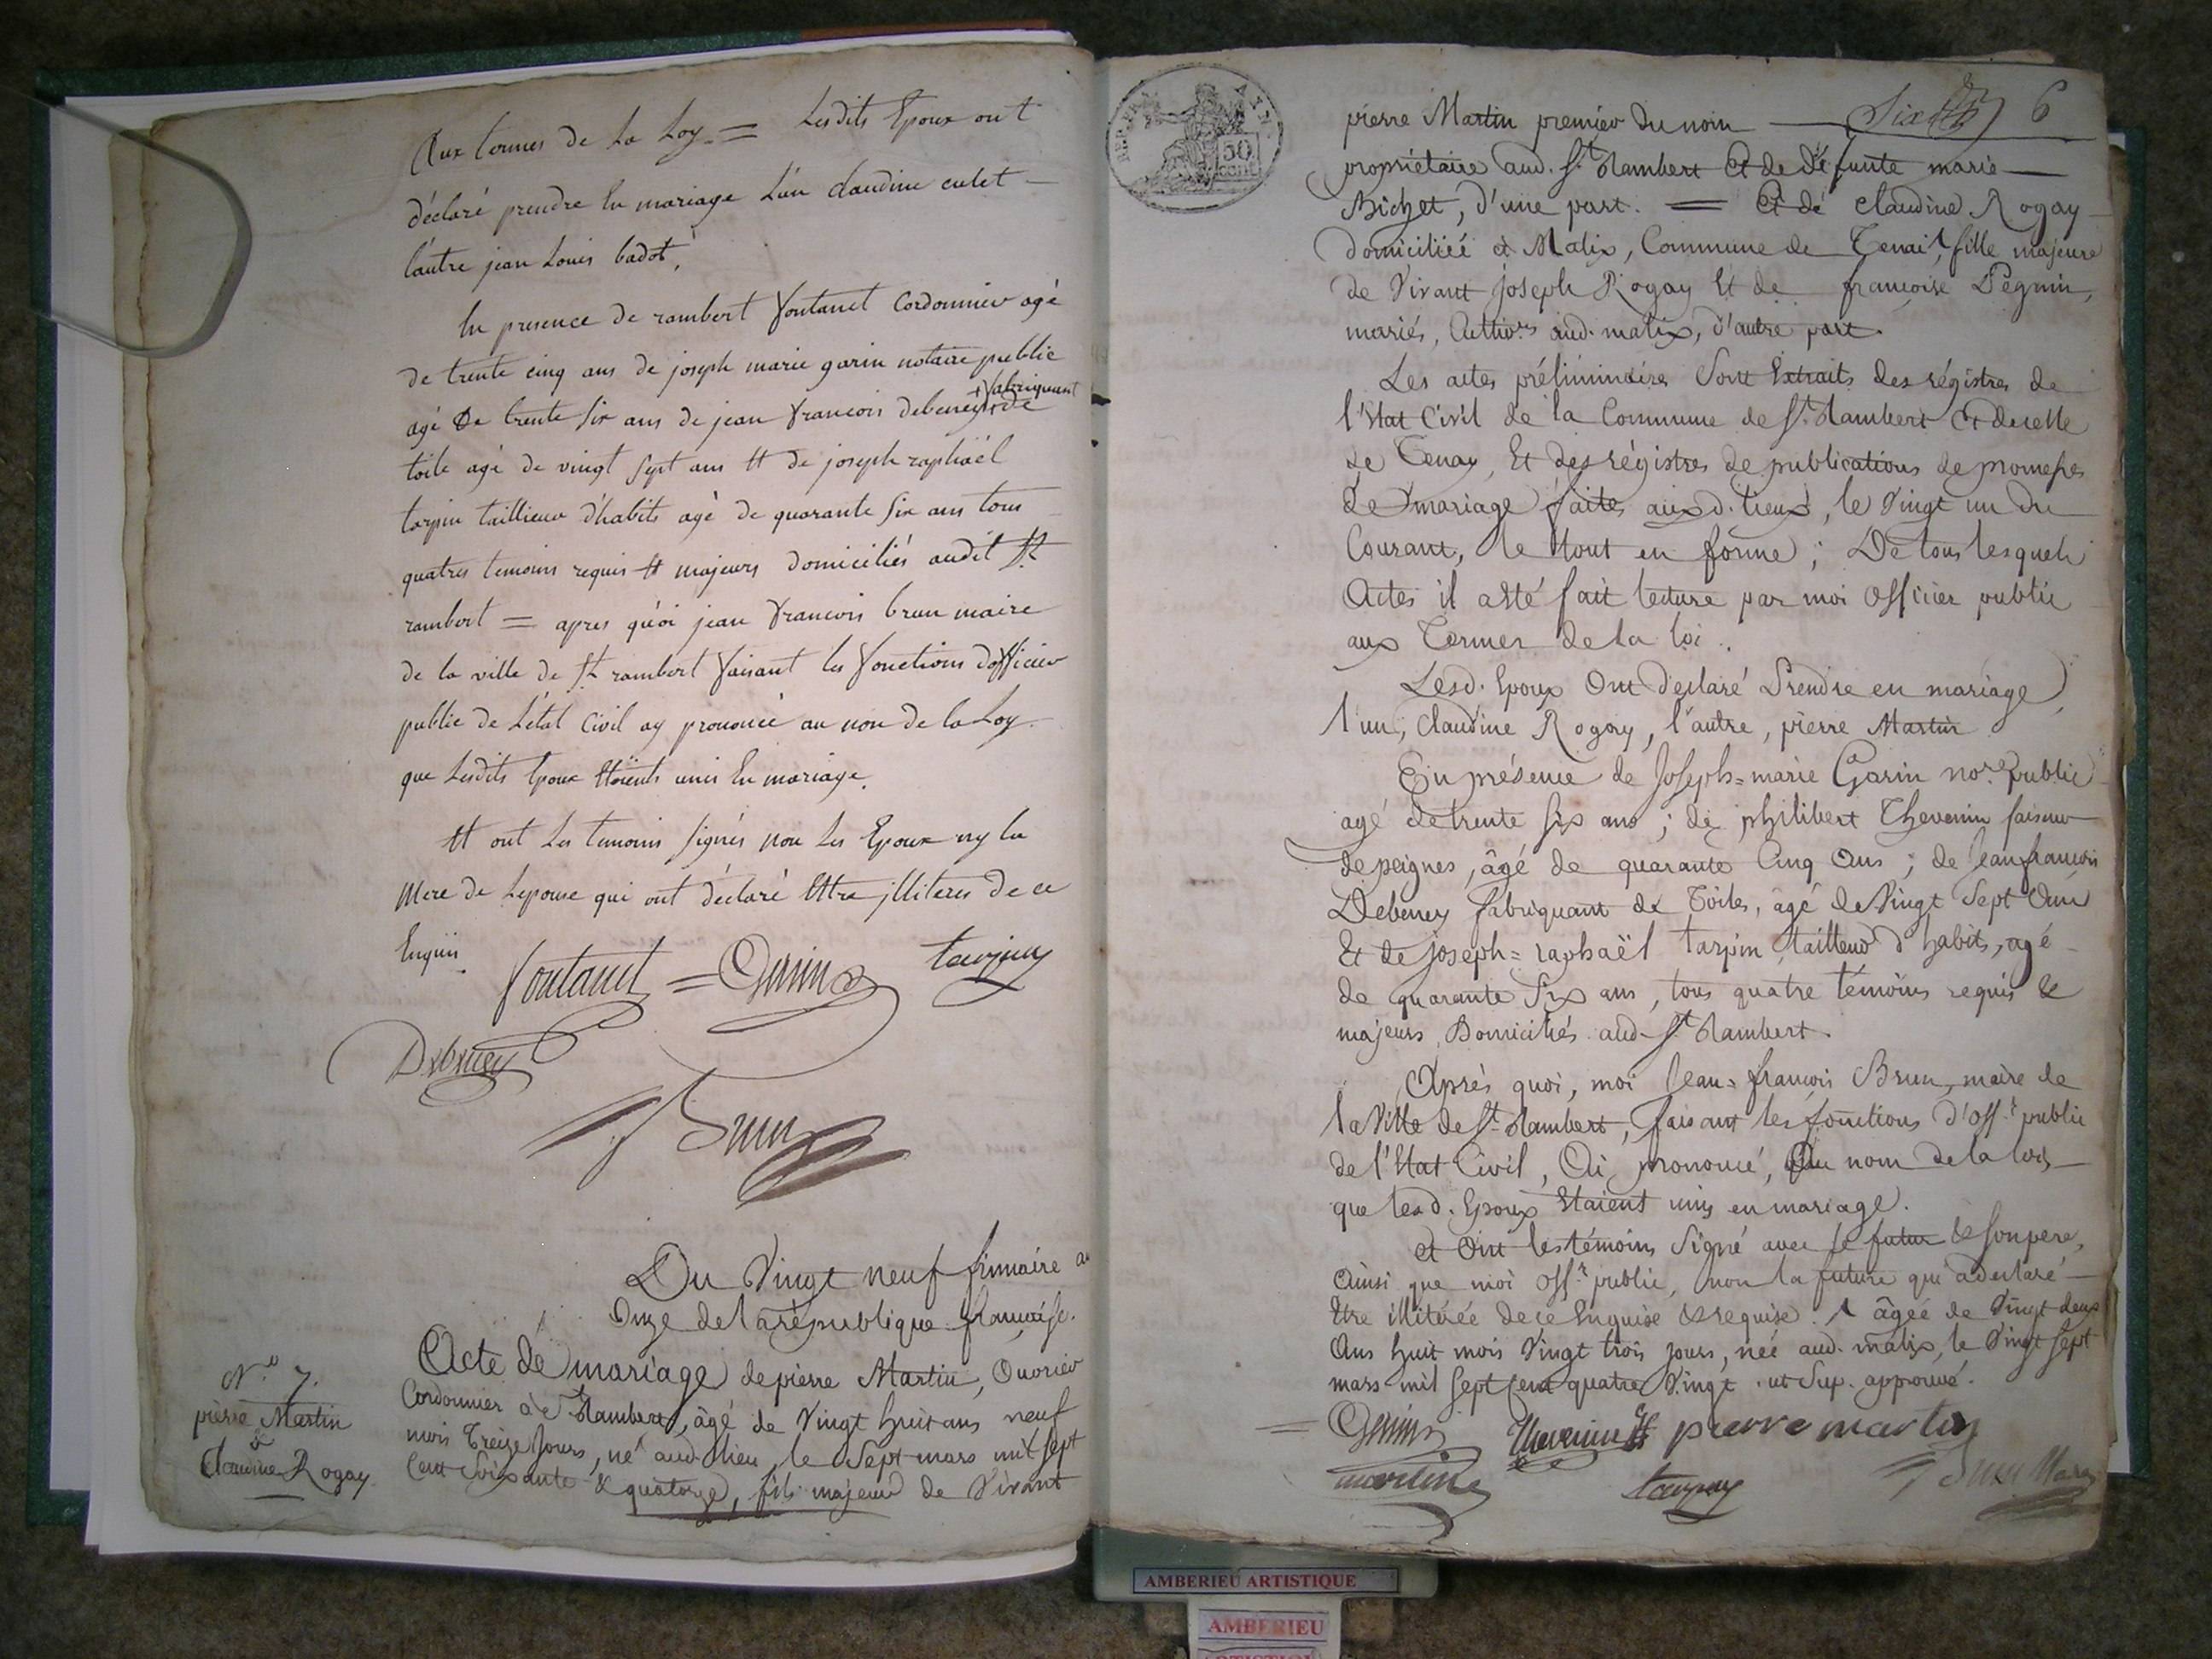 Aux termes de la Loy = Lesdits Epoux ont
déclaré prendre En mariage L'un claudine culet
l'autre jean Louis badot,
En presence de rambert fontanet Cordonnier agé
de trente cinq ans de joseph marie garin notaire public
agé De trente six ans de jean francois debeney + de
+ fabriquant
toile agé de vingt sept ans Et de joseph raphaël
tarpin taillieur d'habits agé de quarante six ans tous
quatres temoins requis Et majeurs domiciliés audit St
rambert = apres quoi jean francois brun maire
de la ville de St rambert faisant les fonctions d'officier
public de L'état Civil ay prononcé au non de la Loy
que Lesdits Epoux Etoients unis En mariage.
Et ont Les temoins signés non Les Epoux ny la
Mere de Lepouse qui ont déclaré Ettre illiteres de ce
Enquis
fontanet = Garin tarpin
Debeney
Brun
Du Vingt neuf frimaire an
Onze de la république française.
N.o 7.
pierre Martin
&
Claudine Rogay
Acte de mariage de pierre Martin, Ouvrier
Cordonnier à St Rambert, âgé de Vingt huit ans neuf
mois treize Jours, né aud. lieu, le Sept mars mil Sept
Cent Soixante & quatorze, fils majeur de Vivant
REP. FRA. 50 cent.
Six 6
pierre Martin premier du nom
propriétaire aud. St Rambert Et de défunte marie
Michet, d'une part. = Et de claudine Rogay
domiciliée à Malix, Commune de Tenai, fille majeure
de Vivant joseph Rogay Et de françoise Péguin,
mariés, Cultiv.rs aud. malix, d'autre part.
Les actes préliminaires Sont Extraits des régistres de
l'Etat Civil de la Commune de St Rambert Et de celle
de Tenay, Et des régistres de publications de promesses
de mariage faites auxd. lieux, le Vingt un du
Courant, le tout en forme ; De tous lesquels
Actes il a été fait lecture par moi Officier public
aux Termes de la loi.
Lesd. Epoux Ont déclaré Prendre en mariage,
l'un, Claudine Rogay, l'autre, pierre Martin
En présence de Joseph=marie Garin no.re public
agé de trente six ans ; de philibert Thevenin faiseur
de peignes, âgé de quarante Cinq Ans ; de Jean françois
Debeney fabriquant de Toiles, âgé de Vingt Sept Ans
Et de joseph=raphaël tarpin tailleur d'habits, agé
de quarante Six ans, tous quatre témoins requis &
majeurs, Domiciliés aud. St Rambert.
Après quoi, moi Jean=françois Brun, maire de
la Ville de St Rambert, faisant les fonctions d'Off.r public
de l'Etat Civil, Ai prononcé, Au nom de la loi,
que lesd. Epoux Etaient unis en mariage.
et Ont les témoins Signé avec le futur & son pere,
Ainsi que moi Off.r public, non la future qui a déclaré
Etre illitérée de ce Enquise & requise. 1 âgée de Vingt deux
Ans huit mois Vingt trois jours, née aud. malix, le Vingt sept
mars mil Sept Cent quatre Vingt. ut Sup. approuvé.
Garin Thevenin pierre martin
martin tarpin Brun Maire
AMBERIEU ARTISTIQUE
AMBERIEU
ARTISTIQUE